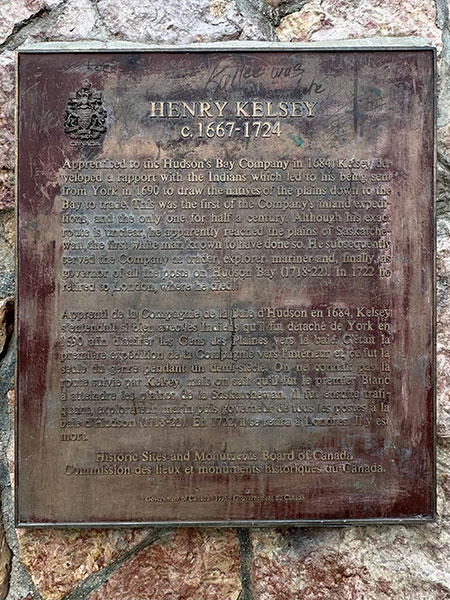 Kylee was
CANADA
HENRY KELSEY
c. 1667-1724
Apprenticed to the Hudson's Bay Company in 1684, Kelsey de-
veloped a rapport with the Indians which led to his being sent
from York in 1690 to draw the natives of the plains down to the
Bay to trade. This was the first of the Company's inland expedi-
tions, and the only one for half a century. Although his exact
route is unclear, he apparently reached the plains of Saskatche-
wan, the first white man known to have done so. He subsequently
served the Company as trader, explorer, mariner and, finally, as
governor of all the posts on Hudson Bay (1718-22). In 1722 he
retired to London, where he died.
Apprenti de la Compagnie de la Baie d'Hudson en 1684, Kelsey
s'entendait si bien avec les Indiens qu'il fut détaché de York en
1690 afin d'attirer les Gens des Plaines vers la baie. C'était la
première expédition de la Compagnie vers l'intérieur et ce fut la
seule du genre pendant un demi-siècle. On ne connaît pas la
route suivie par Kelsey, mais on sait qu'il fut le premier Blanc
à atteindre les plaines de la Saskatchewan. Il fut ensuite trafi-
quant, explorateur, marin puis gouverneur de tous les postes à la
baie d'Hudson (1718-22). En 1722, il se retira à Londres. Il y est
mort.
Historic Sites and Monuments Board of Canada
Commission des lieux et monuments historiques du Canada.
Government of Canada - Gouvernement du Canada